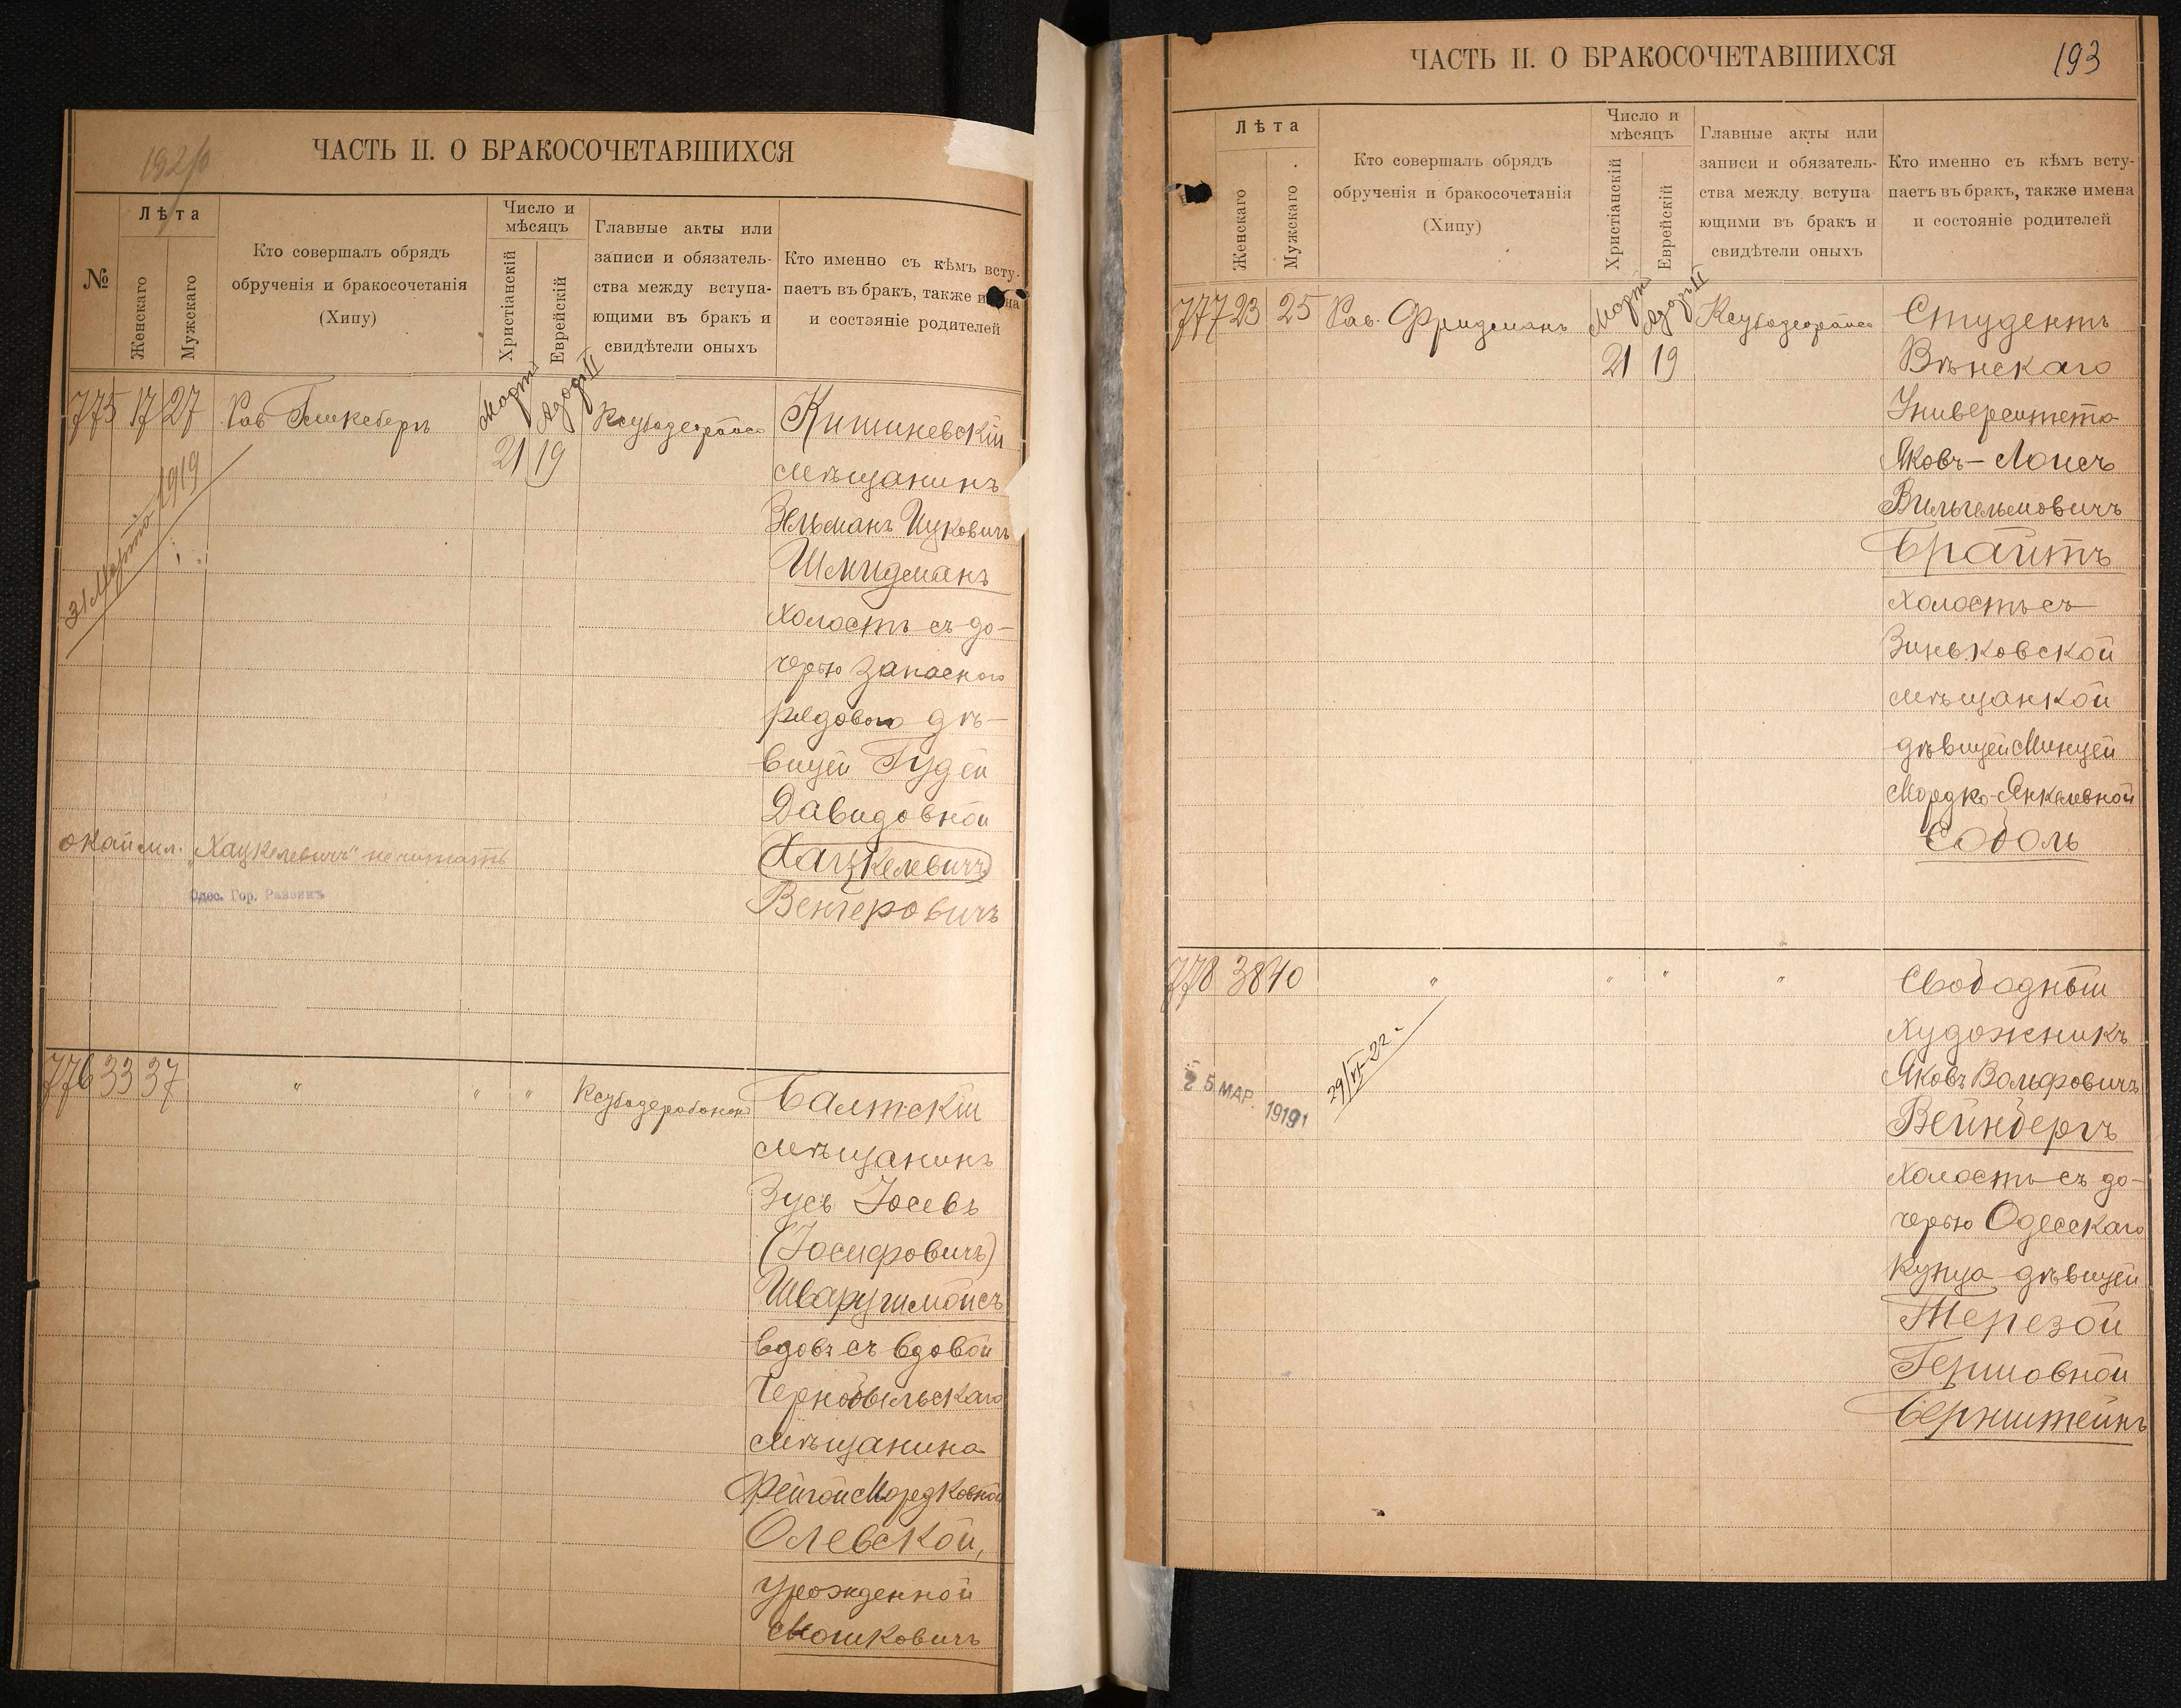 1920
ЧАСТЬ II. О БРАКОСОЧЕТАВШИХСЯ
№
Лѣта
Женскаго
Мужскаго
Кто совершалъ обрядъ
обрученія и бракосочетанія
(Хипу)
Число и
мѣсяцъ
Христіанскій
Еврейскій
Главные акты или
записи и обязатель-
ства между вступа-
ющими въ бракъ и
свидѣтели оныхъ
Кто именно съ кѣмъ всту-
паетъ въ бракъ, также имена
и состояніе родителей
775 17 27 Рав.
Мартъ Адоръ II
21 19
Кишиневскій
мѣщанинъ
Зельманъ Ицковичъ
Шмидманъ
холостъ съ до-
черью запасного
рядового дѣ-
вицей Гудей
Давидовной
Хацкелевичъ
Венгеровичъ
31 Марта 1919
окаймл. „Хацкелевичъ" не читать
Одес. Гор. Раввинъ
776 33 37 " " "
Балтскій
мѣщанинъ
Зусь Іосевъ
(Іосифовичъ)
Шварцгимойсъ
вдовъ съ вдовой
Чернобыльскаго
мѣщанина
Фейгой Мордковной
Олевской,
урожденной
Мошковичъ
ЧАСТЬ II. О БРАКОСОЧЕТАВШИХСЯ
193
Лѣта
Женскаго
Мужскаго
Кто совершалъ обрядъ
обрученія и бракосочетанія
(Хипу)
Число и
мѣсяцъ
Христіанскій
Еврейскій
Главные акты или
записи и обязатель-
ства между вступа
ющими въ бракъ и
свидѣтели оныхъ
Кто именно съ кѣмъ всту-
паетъ въ бракъ, также имена
и состояніе родителей
777 23 25 Рав. Фридманъ
Мартъ Адоръ II
21 19
Студентъ
Вѣнскаго
Университета
Яковъ-Лоисъ
Вильгельмовичъ
Брайтъ
холостъ съ
Зиньковской
мѣщанкой
дѣвицей Минцей
Мордко-Янкелевной
Соболь
778 38 40 " " " "
Свободный
Художникъ
Яковъ Вольфовичъ
Вейнбергъ
холостъ съ до-
черью Одесскаго
купца дѣвицей
Терезой
Гершовной
Бернштейнъ
25 МАР. 1919
29/VI-22